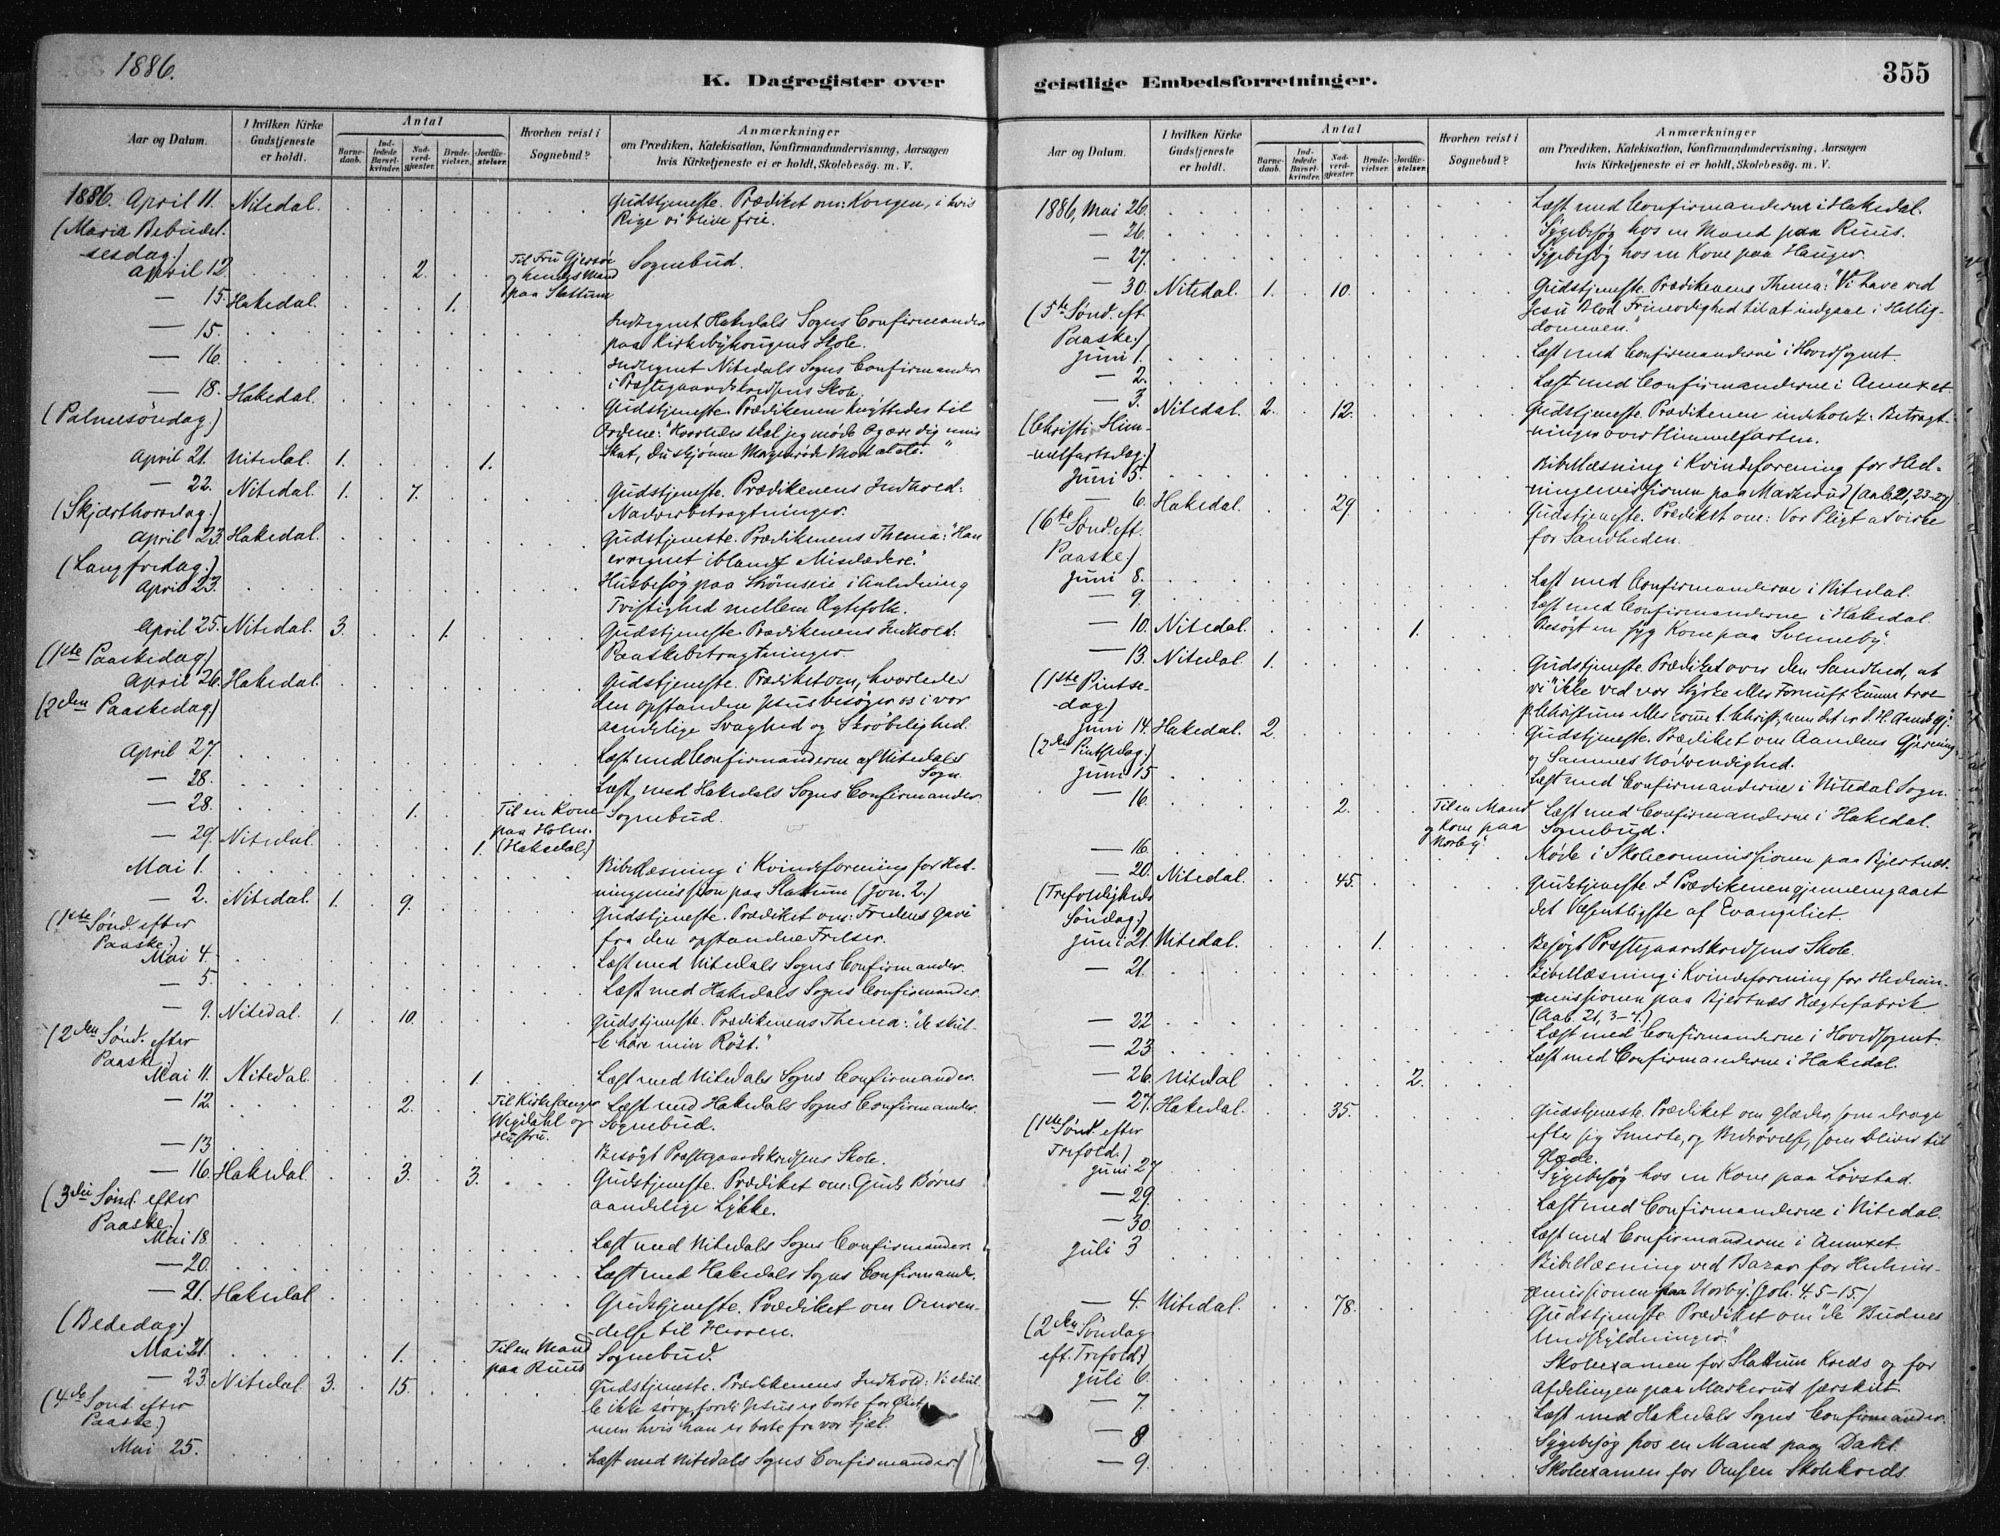 1886.
K. Dagregister over
Aar og Datum.
I hvilken Kirke Gudstjeneste er holdt.
Antal
Barnedaab.
Indledede Barselkvinder.
Nadverdgjester.
Brudevielser.
Jordfæstelser.
Hvorhen reist i Sognebud?
Anmærkninger
om Prædiken, Katekisation, Konfirmandundervisning, Aarsagen
hvis Kirketjeneste ei er holdt, Skolebesøg. m. V.
1886. April 11. Nitedal. Gudstjeneste. Prædiket om: Kongen, i hvis
(Maria Bebudel- Rige vi blive frie.
sesdag)
April 12. 2. Til Fru Gjersøe Sognebud.
og hendes Mand
paa Slattum
— 15. Hakedal. 1.
— 15. Indtegnet Hakedals Sogns Confirmander
paa Kirkebykongens Skole.
— 16. Indtegnet Nitedals Sogns Confirmander
i Præstegaardskredsens Skole.
— 18. Hakedal. Gudstjeneste. Prædikenen knyttedes til
(Palmesøndag) Ordene: "Hvorledes skal jeg møde og ære dig min
Skat, du skjønne Morgenrøde
April 21. Nitedal. 1. 1.
— 22. Nitedal. 1. 7. Gudstjeneste. Prædikenens Indhold:
(Skjærthorsdag) Nadverbetragtninger.
April 23. Hakedal. Gudstjeneste. Prædikenens Thema: "Han
(Langfredag.) er regnet iblandt Misdædere."
April 23. Husbesøg paa Strømseie i Anledning
Tvistighed mellem Ægtefolk.
April 25. Nitedal. 3. 1. Gudstjeneste. Prædikenens Indhold:
(1ste Paaskedag) Paaskebetragtninger.
April 26. Hakedal. Gudstjeneste. Prædiket om, hvorledes
(2den Paaskedag) den opstandne Jesus besøger os i vor
aandelige Svaghed og Skrøbelighed.
April 27. Læst med Confirmanderne af Nitedals
Sogn.
— 28. Læst med Hakedals Sogns Confirmander
— 28. 1. Til en Kone Sognebud.
paa Holm.
(Hakedal.)
— 29. Nitedal. 1.
Mai 1. Bibellæsning i Kvindeforening for Hed-
ningemission paa Slattum (Jon. 2.)
— 2. Nitedal. 1. 9. Gudstjeneste. Prædiket om: Fredens Gave
(1ste Sønd. efter fra den opstandne Frelser.
Paaske.)
Mai 4. Læst med Nitedals Sogns Confirmander.
— 5. Læst med Hakedals Sogns Confirmander.
— 9. Nitedal. 1. 10. Gudstjeneste. Prædikenens Thema: "de skul-
(2den Sønd. efter le høre min Røst."
Paaske.)
Mai 11. Nitedal. 1. Læst med Nitedals Sogns Confirmander.
— 12. 2. Til Kirkesanger Læst med Hakedals Sogns Confirmander.
Wegdahl og Sognebud.
Hustru.
— 13. Besøgt Præstegaardskredsens Skole.
— 16. Hakedal. 3. 3. Gudstjeneste. Prædiket om: Guds Børns
(3die Sønd. efter aandelige Lykke.
Paaske.)
Mai 18. Læst med Nitedals Sogns Confirmander.
— 20. Læst med Hakedals Sogns Confirmande.
— 21. Hakedal Gudstjeneste. Prædiket om Omven-
(Bededag.) delse til Herren.
Mai 21. 1. Til en Mand Sognebud.
paa Ruus
— 23. Nitedal 3. 15. Gudstjeneste. Prædikenens Indhold: Vi skul-
(4de Sønd efter le ikke sørge, fordi Jesus er borte for Øiet,
Paaske) men hvis han er borte fra vor Sjæl.
Mai 25. Læst med Nitedals Sogns Confirmander
geistlige Embedsforretninger.
355
Aar og Datum.
I hvilken Kirke Gudstjeneste er holdt.
Antal
Barnedaab.
Indledede Barselkvinder.
Nadverdgjester.
Brudevielser.
Jordfæstelser.
Hvorhen reist i Sognebud?
Anmærkninger
om Prædiken, Katekisation, Konfirmandundervisning, Aarsagen
hvis Kirketjeneste ei er holdt, Skolebesøg. m. V.
1886, Mai 26. Læst med Confirmanderne i Hakedal.
— 26. Sygebesøg hos en Mand paa Ruus.
— 27. Sygebesøg hos en Kone paa Hauger.
— 30. Nitedal. 1. 10. Gudstjeneste. Prædikenens Thema: "Vi have ved
(5te Sønd. eft. Jesu Blod Frimodighed til at indgaae i Hellig-
Paaske.) dommen."
Juni 1. Læst med Confirmanderne i Hovedsognet.
— 2. Læst med Confirmanderne i Annexet.
— 3. Nitedal. 2. 12. Gudstjeneste. Prædikenen indholdt: Betragt-
(Christi Him- ninger over Himmelfarten.
melfartsdag.)
Juni 5. Bibellæsning i Kvindeforening for Hed-
ningemissionen paa Markerud (Aab. 21, 23-27)
— 6. Hakedal. 29. Gudstjeneste. Prædiket om: Vor Pligt at virke
(6te Sønd. eft. for Sandheden.
Paaske.)
Juni 8. Læst med Confirmanderne i Nitedal.
— 9. Læst med Confirmanderne i Hakedal.
— 10. Nitedal. 1. Besøgt en syg Kone paa Svenneby.
— 13. Nitedal. 1. Gudstjeneste. Prædiket over den Sandhed, at
(1ste Pintse- vi "ikke ved vor Styrke eller Fornuft kunne troe
dag.) p. Christum eller komme t. Christ., men det er d. H. Aands Gj.
Juni 14. Hakedal. 2. Gudstjeneste. Prædiket om Aandens Gjerning
(2den Pintsedag.) og Sammes Nødvendighed.
Juni 15 Læst med Confirmanderne i Nitedal Sogn.
— 16. 2. Til en Mand Læst med Confirmanderne i Hakedal.
og Kone paa Sognebud.
Norby
— 16. Møde i Skolecommissionen paa Bjertnæs.
— 20. Nitedal. 45. Gudstjeneste. I Prædikenen gjennemgaaet
(Trefoldigheds det Væsentligste af Evangeliet.
Søndag.)
Juni 21. Nitedal. 1. Besøgt Præstegaardskredsens Skole.
— 21. Bibellæsning i Kvindeforening for Hednin-
gemissionen paa Bjertnæs Hægtefabrik
(Aab. 21, 3-7.)
— 22 Læst med Confirmanderne i Hovedsognet.
— 23 Læst med Confirmanderne i Hakedal.
— 26. Nitedal 2.
— 27. Hakedal. 35. Gudstjeneste. Prædiket om glæder, som drage
(1ste Sønd. efter efter sig Smerte, og Bedrøvelse, som bliver til
Trefold.) Glæde.
Juni 27 Sygebesøg hos en Kone paa Løvstad.
— 29. Læst med Confirmanderne i Nitedal.
— 30 Læst med Confirmanderne i Annexet.
Juli 3 Bibellæsning ved Bazar for Hednin-
gemissionen paa Norby. (Joh. 4. 5-15.)
— 4. Nitedal. 78. Gudstjeneste. Prædiket om "de Budnes
(2den Søndag Undskyldninger."
eft. Trefold)
Juli 6 Skoleexamen for Slattum Kreds og for
Afdelingen paa Markerud særskilt.
— 7. Læst med Hakedals Sogns Confirmander.
— 8 Sygebesøg hos en Mand paa Dahl.
— 9. Skoleexamen for Skolekreds.